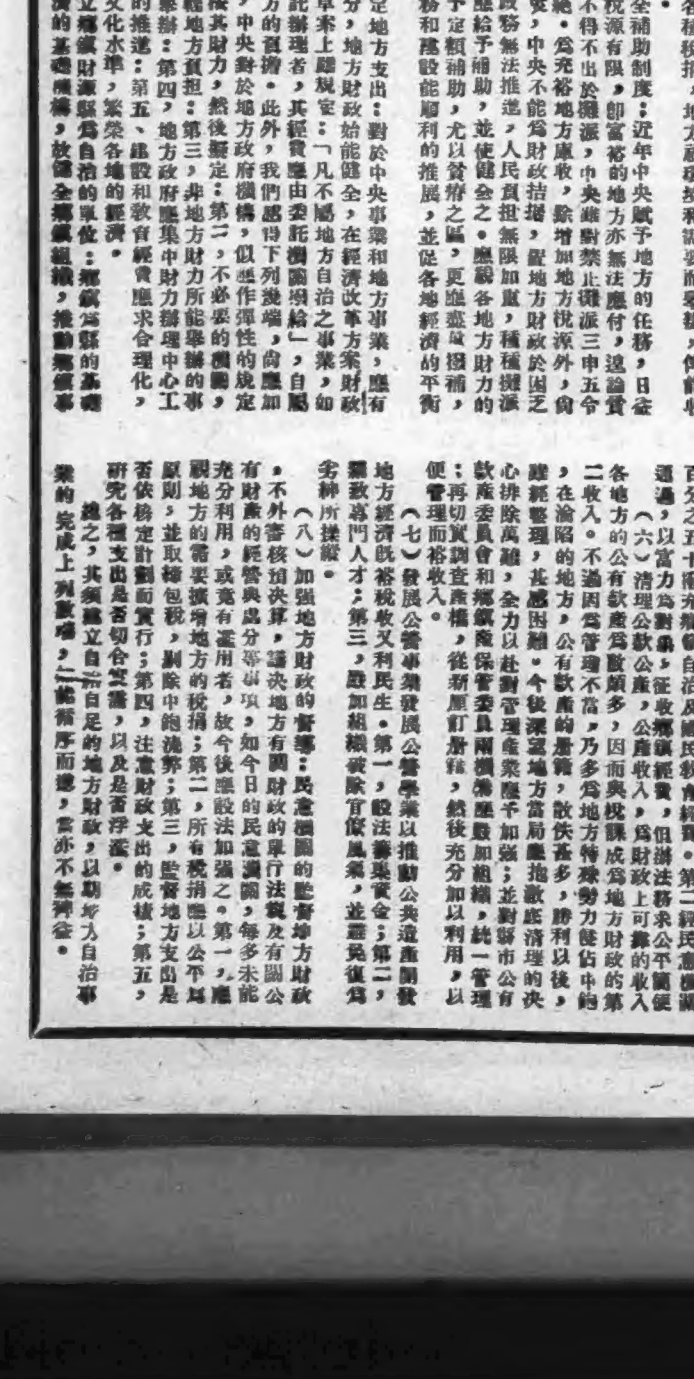 全補助制度：近年中央賦予地方的任務，日益
稅源有限，卽富裕的地方亦無法應付，遑論貧
不得不出於攤派，中央雖對禁止攤派三申五令
絕。爲充裕地方庫收，除增加地方稅源外，尙
中央不能爲財政拮据，置地方財政於困乏
政務無法推進，人民負担無限加重，種種攤派
應給予補助，並使健全之。應視各地方財力的
予定額補助，尤以貧瘠之區，更應盡量撥補，
務和建設能順利的推展，並促各地經濟的平衡
定地方支出：對於中央事業和地方事業，應有
分，地方財政始能健全，在經濟改革方案財政
草案上雖規定：「凡不屬地方自治之事業，如
託辦理者，其經費應由委託機關撥給」，自屬
方的負擔。此外，我們感得下列幾端，尙應加
，中央對於地方政府機構，似應作彈性的規定
按其財力，然後釐定：第二，不必要的機關，
輕地方負担：第三，非地方財力所能舉辦的事
舉辦：第四，地方政府應集中財力辦理中心工
的推進：第五、建設和敎育經費應求合理化，
文化水準，繁榮各地的經濟。
立鄉鎭財源縣爲自治的單位：鄉鎭爲縣的基礎
的基礎機構，故健全鄉鎭組織，推動鄉鎭事
自治及國民敎育經費。第二經民意機關
通過，以富力爲對象，征收鄉鎭經費，但辦法務求公平簡便
（六）淸理公款公產，公產收入，爲財政上可靠的收入
各地方的公有款產爲數頗多，因而與稅課成爲地方財政的第
二收入。不過因爲管理不當，乃多爲地方特殊勢力侵佔中飽
，在淪陷的地方，公有款產的册籍，散佚甚多，勝利以後，
雖經整理，甚感困難。今後深望地方當局應抱澈底淸理的决
心排除萬難，全力以赴對管理產業應予加强；並對縣市公有
款產委員會和鄉鎭產保管委員兩機構應嚴加組織，統一管理
；再切實調查產權，從新厘訂册籍，然後充分加以利用，以
便管理而裕收入。
（七）發展公營事業發展公營事業以推動公共造產開發
地方經濟旣裕稅收又利民生。第一，設法籌集資金；第二，
羅致專門人才；第三，嚴加組織破除官僚風氣，並避免復爲
劣紳所操縱。
（八）加强地方財政的督導：民意機關的監督地方財政
，不外審核預决算，議决地方有關財政的單行法規及有關公
有財產的經營與處分等事項，如今日的民意機關，每多未能
充分利用，或竟有濫用者，故今後應設法加强之。第一，應
視地方的需要擴增地方的稅捐；第二，所有稅捐應以公平爲
原則，並取締包稅，剔除中飽流弊；第三，監督地方支出是
否依核定計劃而實行；第四，注意財政支出的成績；第五，
硏究各種支出是否切合實需，以及是否浮濫。
總之，其須建立自給自足的地方財政，以期地方自治事
業的完成上列數端，能循序而進，當亦不無裨益。